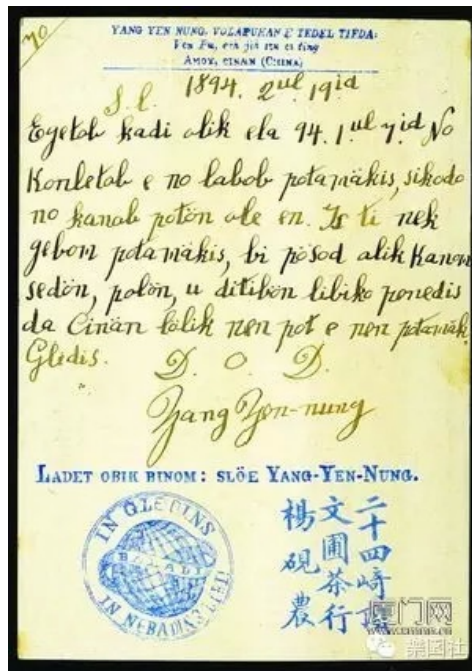 70
YANG YEN NUNG, VOLAPÜKAN E TEDEL TIEDA:
Ven Pu, erh jih sze ei ting
AMOY, CINÄN (CHINA)
S. l. 1894. 2ul 19id
Egetob kadi olik ela 94. 1ul 7id No
Konletob e no labob potamäkis, sikodo
no kanob potön ole en. Is ti nek
gebom potamäkis, bi pösod alik kanom
sedön, polön, u ditibön libiko penedis
da Cinän lölik nen pot e nen potamäk.
Glidis. D. O. D.
Yang Yen-nung
LADET OBIK BINOM: SLÖE YANG-YEN-NUNG.
IN
IN NEBADINS
二十四崎頂
文圃茶行
楊硯農
厦门网
樂図社